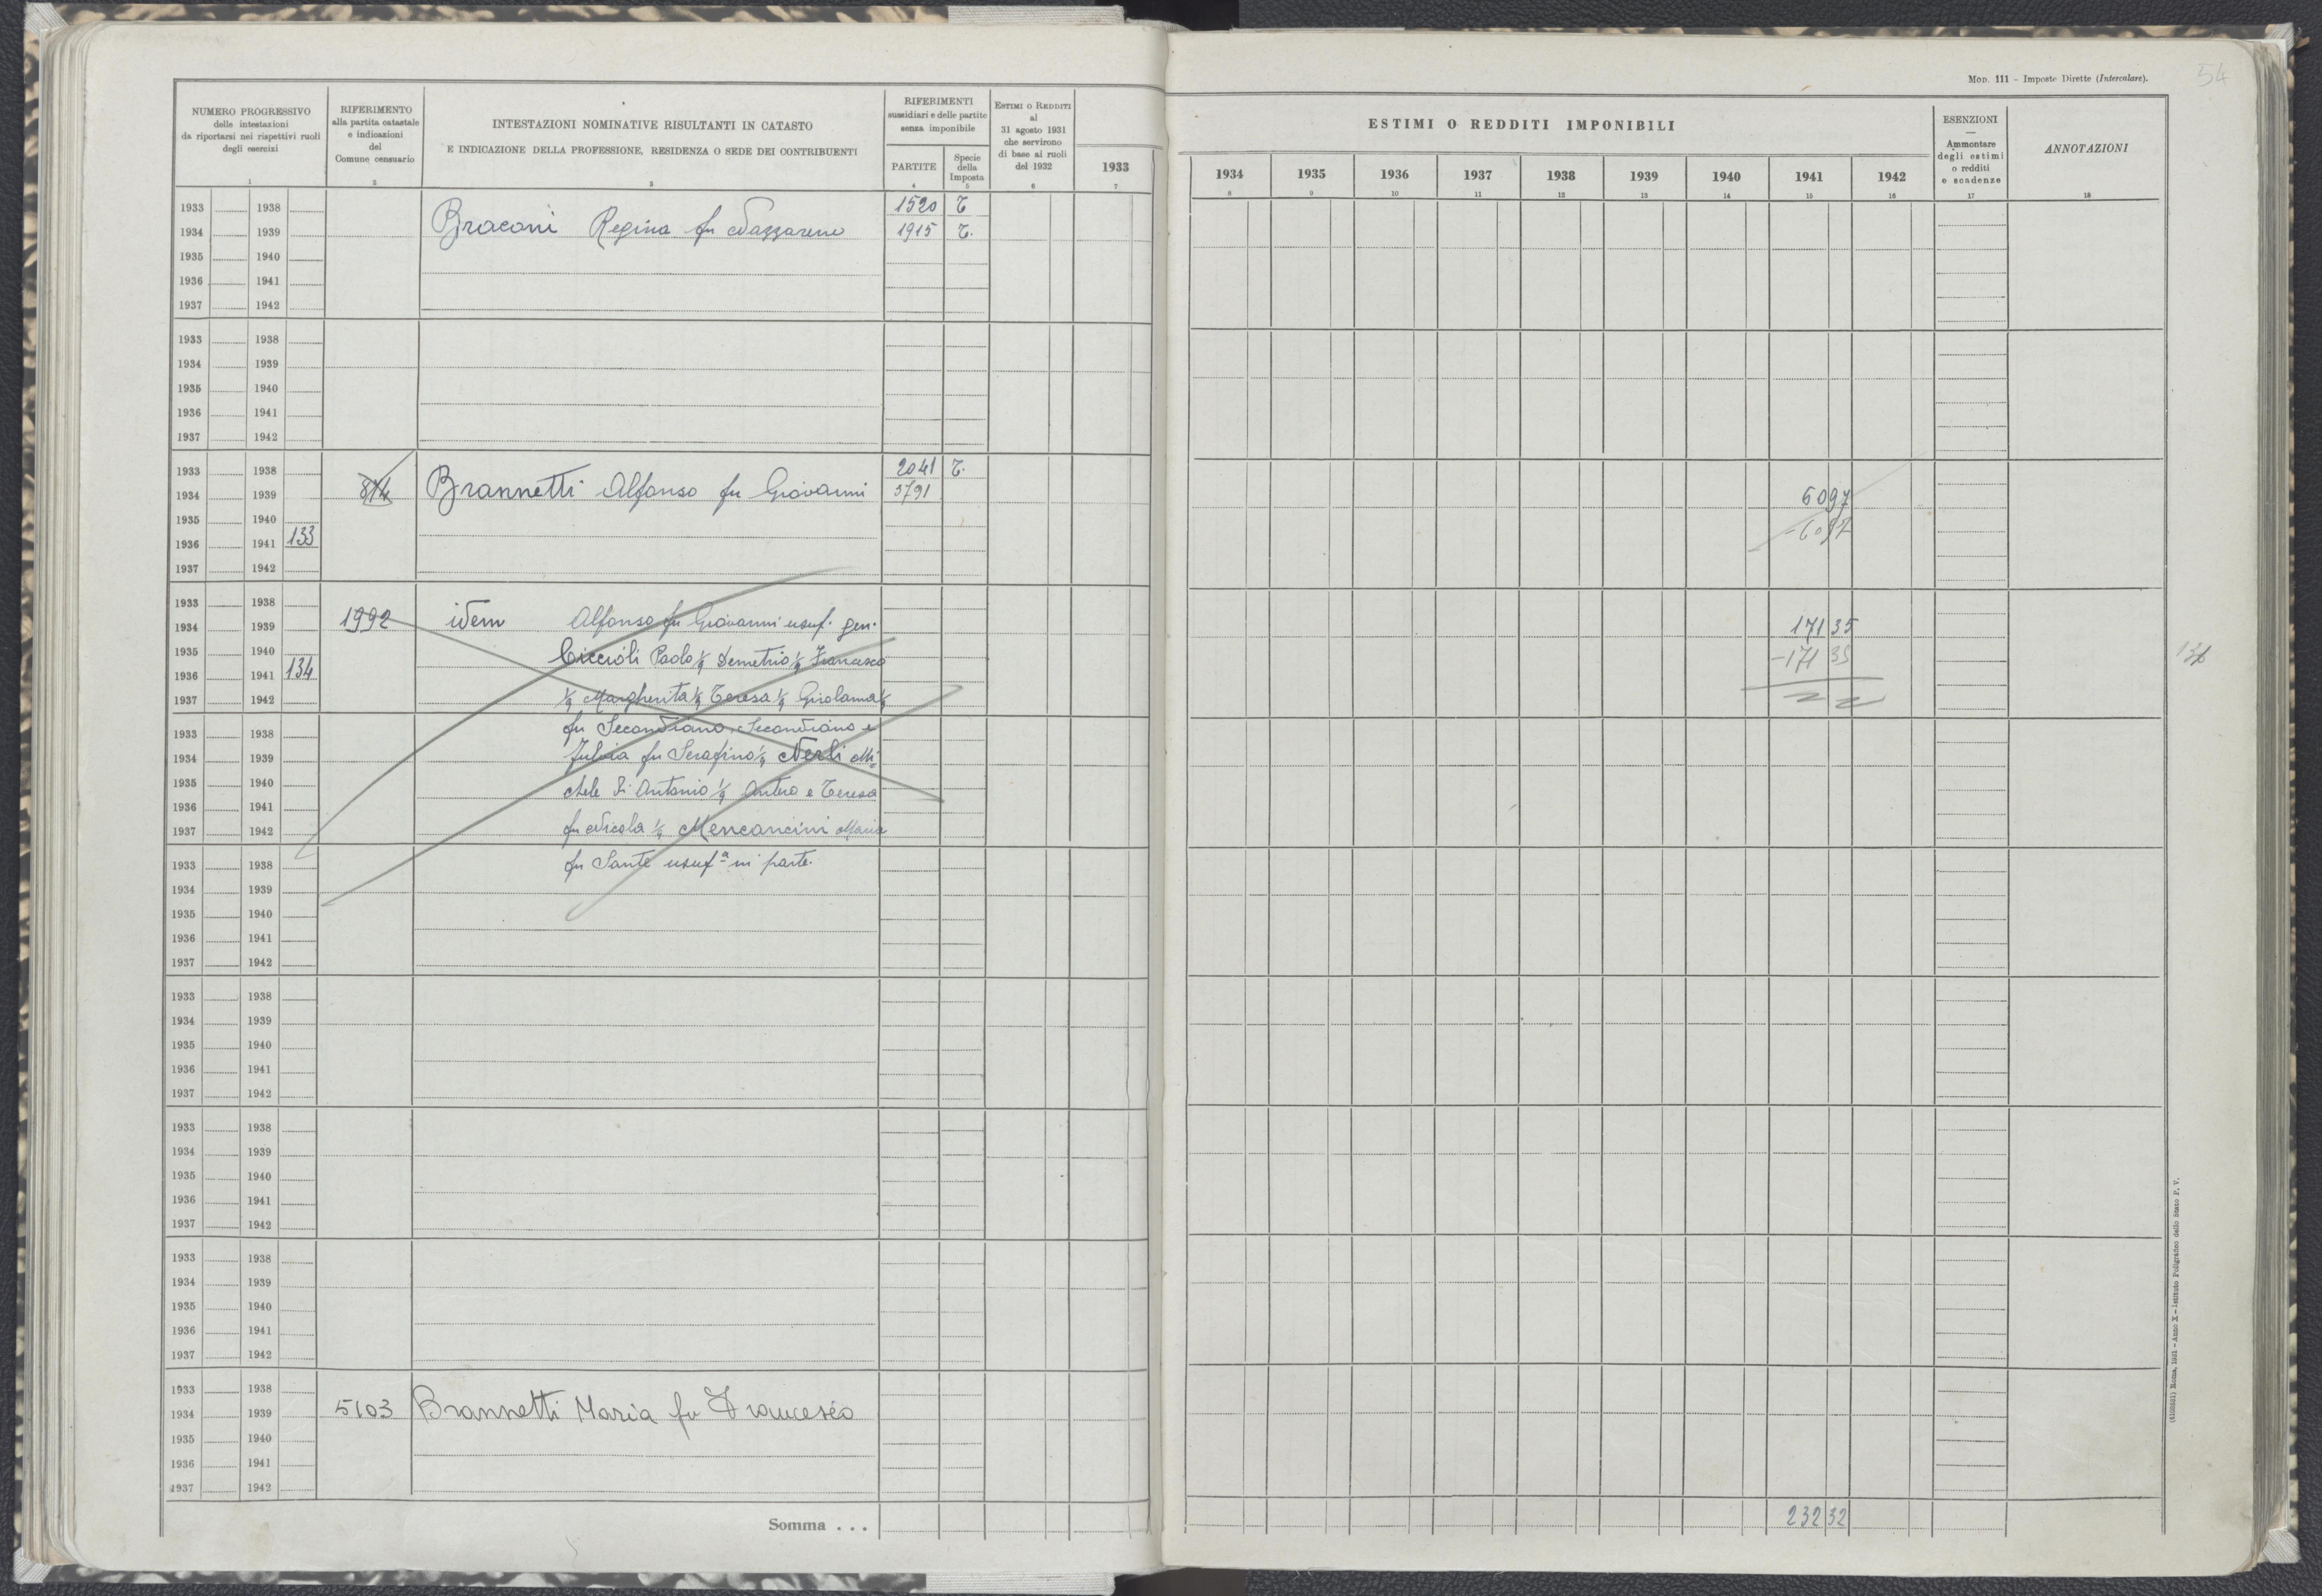 Mod. 111 – Imposte Dirette (Intercalare).
54
NUMERO PROGRESSIVO
delle intestazioni
da riportarsi nei rispettivi ruoli
degli esercizi
1
RIFERIMENTO
alla partita catastale
e indicazioni
del
Comune censuario
2
INTESTAZIONI NOMINATIVE RISULTANTI IN CATASTO
E INDICAZIONE DELLA PROFESSIONE, RESIDENZA O SEDE DEI CONTRIBUENTI
3
RIFERIMENTI
sussidiari e delle partite
senza imponibile
PARTITE
4
Specie
della
Imposta
5
ESTIMI O REDDITI
al
31 agosto 1931
che servirono
di base ai ruoli
del 1932
6
1933
7
ESTIMI O REDDITI IMPONIBILI
1934 1935 1936 1937 1938 1939 1940 1941 1942
8 9 10 11 12 13 14 15 16
ESENZIONI
—
Ammontare
degli estimi
o redditi
e scadenze
17
ANNOTAZIONI
18
1933 1938 1520 T
1934 1939 Braconi Regina fu Nazzareno 1915 T.
1935 1940
1936 1941
1937 1942
1933 1938
1934 1939
1935 1940
1936 1941
1937 1942
1933 1938 2041 T.
1934 1939 814 Brannetti Alfonso fu Giovanni 3791 60 97
1935 1940 -60 97
1936 1941 133
1937 1942
1933 1938
1934 1939 1992 idem Alfonso fu Giovanni usuf. gen. 171 35
1935 1940 Ciccioli Paolo 1/9 Demetrio 1/9 Francesco -171 35
1936 1941 134
1937 1942 1/9 Margherita 1/9 Teresa 1/9 Girolama 1/9
1933 1938 fu Secondiano, Secondiano e
1934 1939 Fulvia fu Serafino 1/9 Nerli Mi=
1935 1940 chele di Antonio 1/9 Antero e Teresa
1936 1941
1937 1942 fu Nicola 1/9 Mencancini Maria
1933 1938 fu Sante usufª in parte.
1934 1939
1935 1940
1936 1941
1937 1942
1933 1938
1934 1939
1935 1940
1936 1941
1937 1942
1933 1938
1934 1939
1935 1940
1936 1941
1937 1942
1933 1938
1934 1939
1935 1940
1936 1941
1937 1942
1933 1938
1934 1939 5103 Brannetti Maria fu Francesco
1935 1940
1936 1941
1937 1942
Somma . . . 232 32